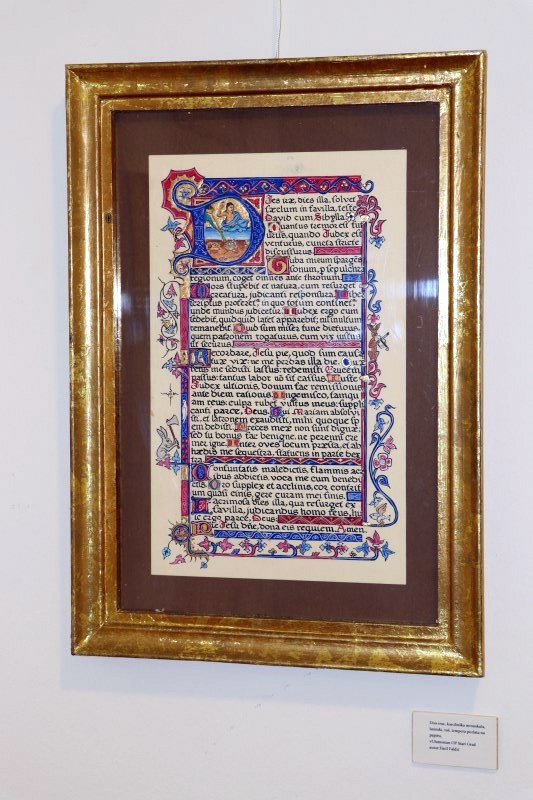 Dies iræ, dies illa, solvet
sæclum in favilla, teste
David cum Sibylla.
Quantus tremor est fu
turus, quando Judex est
venturus, cuncta stricte
discussurus.
Tuba mirum spargens
sonum, p sepulchra
regionum, coget omnes ante thronum.
Mors stupebit et natura, cum resurget
creatura, judicanti responsura. Liber
scriptus profetur, in quo totum continet,
unde mundus judicetur. Judex ergo cum
sedebit, quidquid latet apparebit: nil inultum
remanebit. Quid sum miser tunc dicturus,
quem patronem rogaturus, cum vix justus
sit securus.
Recordare, Jesu pie, quod sum causa
tuæ viæ: ne me perdas illa die. Quær
ens me sedisti lassus: redemisti Crucem
passus: tantus labor nō sit cassus. Juste
Judex ultionis, donum fac remissionis
ante diem rationis. Ingemisco, tamqu
am reus: culpa rubet vultus meus: suppli
canti parce, Deus. Qui Mariam absolvi
sti, et latronem exaudisti, mihi quoque sp
em dedisti. Preces meæ non sunt dignæ:
sed tu bonus fac benigne, ne perenni cre
mer igne. Inter oves locum præsta, et ab
hædis me sequestra, statuens in parte dex
tra.
Confutatis maledictis, flammis acr
ibus addictis, voca me cum benedi
ctis. Oro supplex et acclinis, cor contrit
um quasi cinis, gere curam mei finis.
Lacrimosa dies illa, qua resurget ex
favilla, judicandus homo reus, hu
ic ergo parce, Deus:
Pie Jesu Dñe, dona eis requiem. Amen.